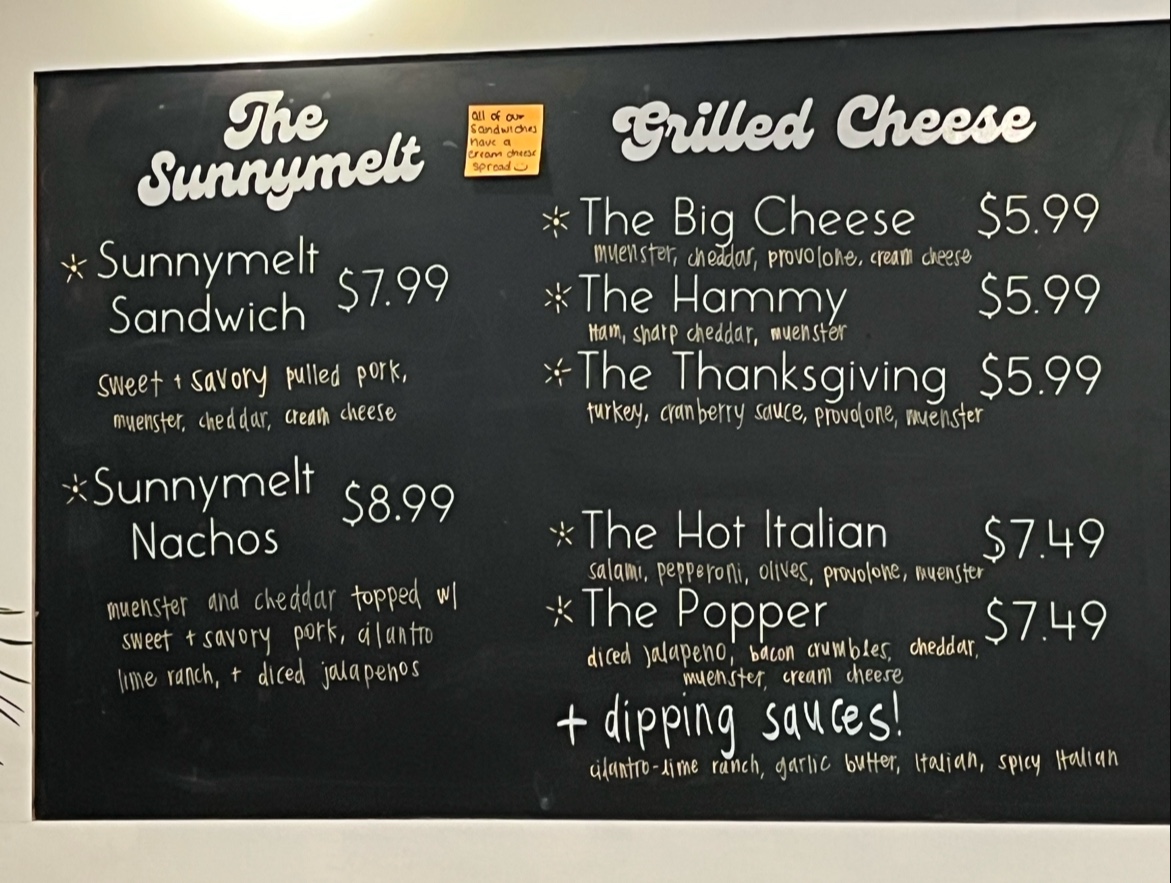 The
Sunnymelt
Sunnymelt
Sandwich
$7.99
sweet + savory pulled pork,
muenster, cheddar, cream cheese
Sunnymelt
Nachos
$8.99
muenster and cheddar topped w/
sweet + savory pork, cilantro
lime ranch, + diced jalapenos
all of our
sandwiches
have a
cream cheese
spread
Grilled Cheese
The Big Cheese $5.99
muenster, cheddar, provolone, cream cheese
The Hammy $5.99
Ham, sharp cheddar, muenster
The Thanksgiving $5.99
turkey, cranberry sauce, provolone, muenster
The Hot Italian $7.49
salami, pepperoni, olives, provolone, muenster
The Popper $7.49
diced jalapeno, bacon crumbles, cheddar,
muenster, cream cheese
+ dipping sauces!
cilantro-lime ranch, garlic butter, Italian, spicy Italian